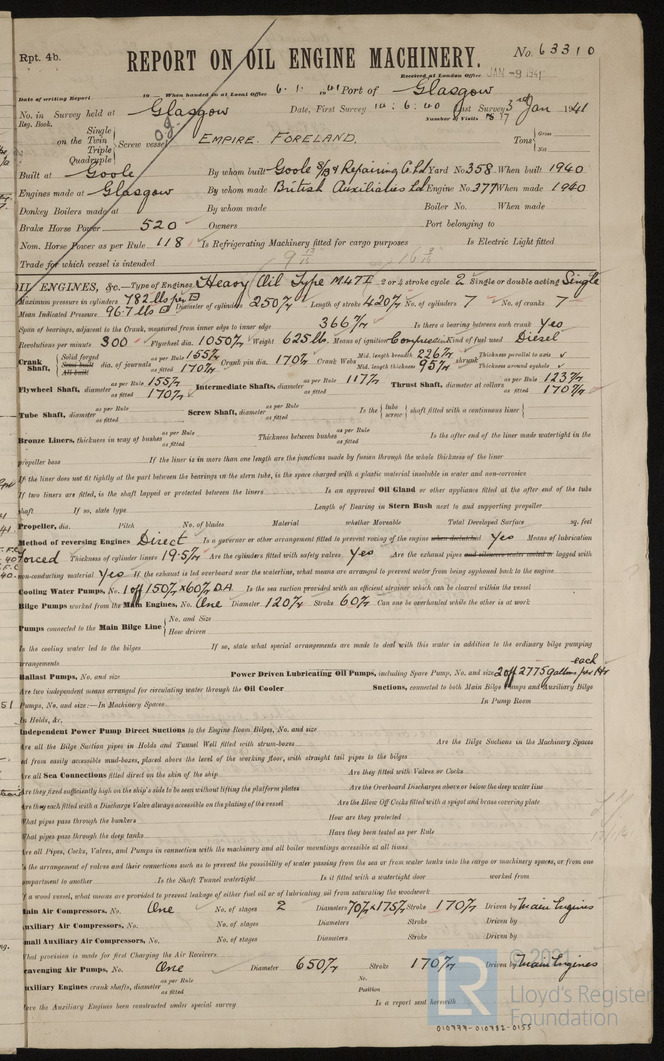 Rpt. 4b.
REPORT ON OIL ENGINE MACHINERY.
No. 63310
Received at London Office JAN -9 1941
Date of writing Report 19 When handed in at Local Office 6.1.1941 Port of Glasgow
No. in Survey held at Glasgow Date, First Survey 14:6:40 Last Survey 3rd Jan 1941
Reg. Book. Number of Visits
Single
on the Twin
Triple
Quadruple
Screw vessel EMPIRE. FORELAND. Tons Gross
Net
Built at Goole By whom built Goole S/B & Repairing Co Ltd Yard No 358 When built 1940
Engines made at Glasgow By whom made British Auxiliaries Ltd Engine No. 377 When made 1940
Donkey Boilers made at By whom made Boiler No. When made
Brake Horse Power 520 Owners Port belonging to
Nom. Horse Power as per Rule 118 Is Refrigerating Machinery fitted for cargo purposes Is Electric Light fitted
Trade for which vessel is intended
OIL ENGINES, &c.—Type of Engines Heavy Oil Type M47I 2 or 4 stroke cycle 2 Single or double acting Single
Maximum pressure in cylinders 782 lbs per □" Diameter of cylinders 250 m/m Length of stroke 420 m/m No. of cylinders 7 No. of cranks 7
Mean Indicated Pressure 96.7 lbs □"
Span of bearings, adjacent to the Crank, measured from inner edge to inner edge 366 m/m Is there a bearing between each crank Yes
Revolutions per minute 300 Flywheel dia. 1050 m/m Weight 625 lb. Means of ignition Compression Kind of fuel used Diesel
Crank Shaft, Solid forged Semi built All built dia. of journals as per Rule 155 m/m as fitted 170 m/m Crank pin dia. 170 m/m Crank Webs Mid. length breadth 226 m/m Mid. length thickness 95 m/m shrunk Thickness parallel to axis Thickness around eyehole
Flywheel Shaft, diameter as per Rule 155 m/m as fitted 170 m/m Intermediate Shafts, diameter as per Rule 117 m/m as fitted Thrust Shaft, diameter at collars as per Rule 123 m/m as fitted 170 m/m
Tube Shaft, diameter as per Rule as fitted Screw Shaft, diameter as per Rule as fitted Is the tube screw shaft fitted with a continuous liner
Bronze Liners, thickness in way of bushes as per Rule as fitted Thickness between bushes as per Rule as fitted Is the after end of the liner made watertight in the
propeller boss If the liner is in more than one length are the junctions made by fusion through the whole thickness of the liner
If the liner does not fit tightly at the part between the bearings in the stern tube, is the space charged with a plastic material insoluble in water and non-corrosive
If two liners are fitted, is the shaft lapped or protected between the liners Is an approved Oil Gland or other appliance fitted at the after end of the tube
shaft If so, state type Length of Bearing in Stern Bush next to and supporting propeller
Propeller, dia. Pitch No. of blades Material whether Moveable Total Developed Surface sq. feet
Method of reversing Engines Direct Is a governor or other arrangement fitted to prevent racing of the engine when declutched Yes Means of lubrication
forced Thickness of cylinder liners 19.5 m/m Are the cylinders fitted with safety valves Yes Are the exhaust pipes and silencers water cooled or lagged with
non-conducting material Yes If the exhaust is led overboard near the waterline, what means are arranged to prevent water from being syphoned back to the engine
Cooling Water Pumps, No. 1 off 150 m/m x 60 m/m D.A. Is the sea suction provided with an efficient strainer which can be cleared within the vessel
Bilge Pumps worked from the Main Engines, No. One Diameter 120 m/m Stroke 60 m/m Can one be overhauled while the other is at work
Pumps connected to the Main Bilge Line No. and Size
How driven
Is the cooling water led to the bilges If so, state what special arrangements are made to deal with this water in addition to the ordinary bilge pumping
arrangements
Ballast Pumps, No. and size Power Driven Lubricating Oil Pumps, including Spare Pump, No. and size 2 off 2775 gallons per Hr each
Are two independent means arranged for circulating water through the Oil Cooler Suctions, connected to both Main Bilge Pumps and Auxiliary Bilge
Pumps, No. and size:—In Machinery Spaces In Pump Room
In Holds, &c.
Independent Power Pump Direct Suctions to the Engine Room Bilges, No. and size
Are all the Bilge Suction pipes in Holds and Tunnel Well fitted with strum-boxes Are the Bilge Suctions in the Machinery Spaces
led from easily accessible mud-boxes, placed above the level of the working floor, with straight tail pipes to the bilges
Are all Sea Connections fitted direct on the skin of the ship Are they fitted with Valves or Cocks
Are they fixed sufficiently high on the ship's side to be seen without lifting the platform plates Are the Overboard Discharges above or below the deep water line
Are they each fitted with a Discharge Valve always accessible on the plating of the vessel Are the Blow Off Cocks fitted with a spigot and brass covering plate
What pipes pass through the bunkers How are they protected
What pipes pass through the deep tanks Have they been tested as per Rule
Are all Pipes, Cocks, Valves, and Pumps in connection with the machinery and all boiler mountings accessible at all times
Is the arrangement of valves and their connections such as to prevent the possibility of water passing from the sea or from water tanks into the cargo or machinery spaces, or from one
compartment to another Is the Shaft Tunnel watertight Is it fitted with a watertight door worked from
If a wood vessel, what means are provided to prevent leakage of either fuel oil or of lubricating oil from saturating the woodwork
Main Air Compressors, No. One No. of stages 2 Diameters 70 m/m x 175 m/m Stroke 170 m/m Driven by Main Engines
Auxiliary Air Compressors, No. No. of stages Diameters Stroke Driven by
Small Auxiliary Air Compressors, No. No. of stages Diameters Stroke Driven by
What provision is made for first Charging the Air Receivers
Scavenging Air Pumps, No. One Diameter 650 m/m Stroke 170 m/m Driven by Main Engines
Auxiliary Engines crank shafts, diameter as per Rule as fitted No. Position
Have the Auxiliary Engines been constructed under special survey Is a report sent herewith
© 2021
LR
Lloyd's Register
Foundation
010779-010782-0155